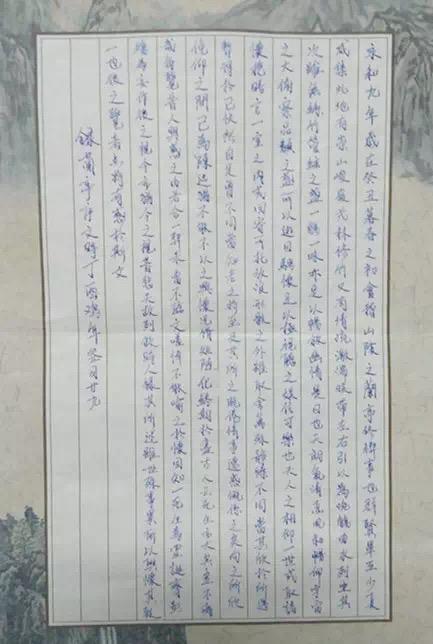 永和九年歲在癸丑暮春之初會稽山陰之蘭亭修禊事也群賢畢至少長
咸集此地有崇山峻嶺茂林修竹又有清流激湍映帶左右引以為流觴曲水列坐其
次雖無絲竹管絃之盛一觴一咏亦足以暢敘幽情是日也天朗氣清惠風和暢仰觀宇宙
之大俯察品類之盛所以遊目騁懷足以極視聽之娛信可樂也夫人之相仰一世或取諸
懷抱晤言一室之內或因寄所托放浪形骸之外雖取舍萬殊靜躁不同當其欣於所遇
暫得於己快然自足曾不知老之將至及其所之既倦情隨事遷感慨係之矣向之所欣
俛仰之間已為陳迹猶不能不以之興懷況修短隨化終期於盡古人云死生亦大矣豈不痛
哉每覽昔人興感之由若合一契未嘗不臨文嗟悼不能喻之於懷固知一死生為虛誕齊彭
殤為妄作後之視今亦猶今之視昔悲夫故列敘時人錄其所述雖世殊事異所以興懷其致
一也後之覽者亦將有感於斯文
錄蘭亭序之時丁酉年月廿九